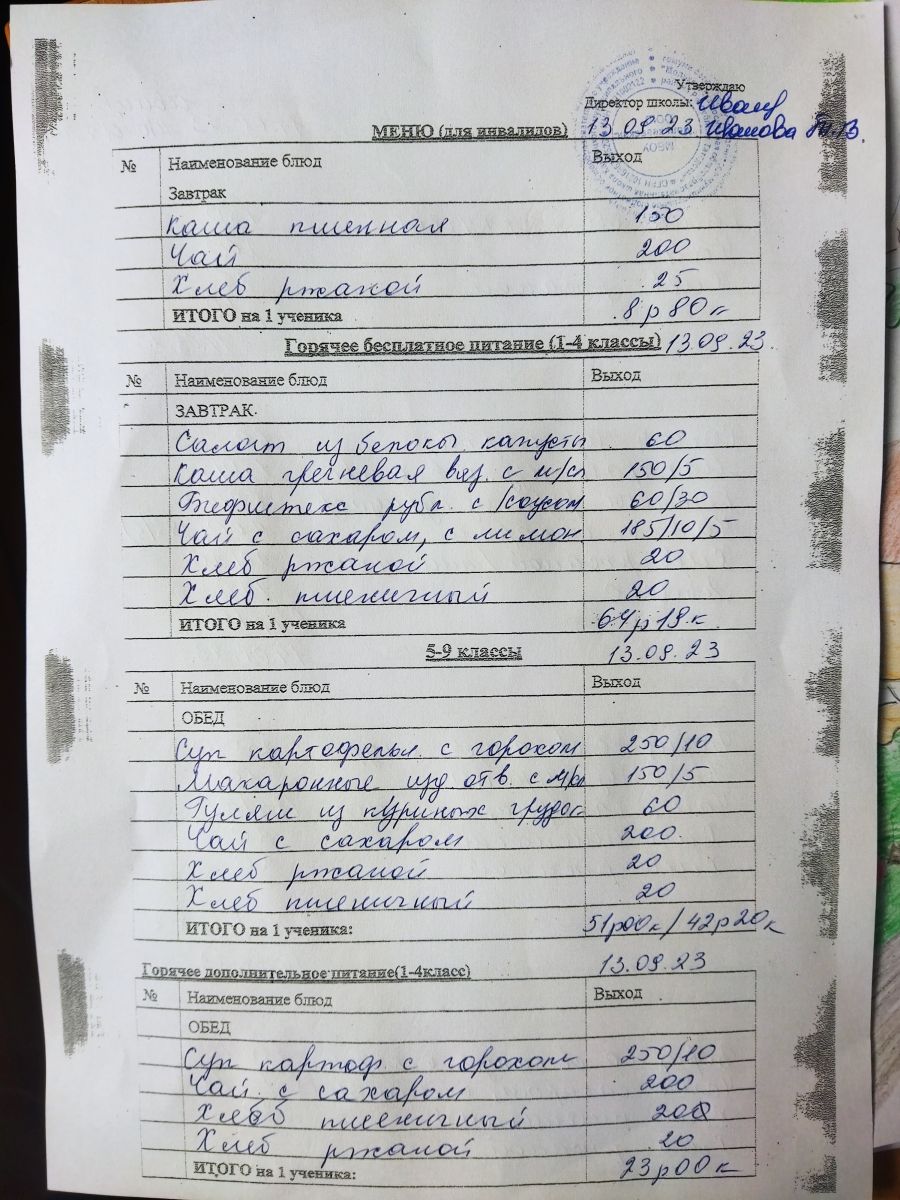 Утверждаю
Директор школы:
МЕНЮ (для инвалидов) 13.09.23 Иванова
№ Наименование блюд Выход
Завтрак
Каша пшенная 150
Чай 200
Хлеб ржаной 25
ИТОГО на 1 ученика 8р80к
Горячее бесплатное питание (1-4 классы) 13.09.23.
№ Наименование блюд Выход
ЗАВТРАК.
Салат из белокоч капусты 60
Каша гречневая вяз. с м/сл 150/5
Бифштекс рубл. с /соусом 60/30
Чай с сахаром, с лимон 185/10/5
Хлеб ржаной 20
Хлеб пшеничный 20
ИТОГО на 1 ученика 64р19к
5-9 классы 13.09.23
№ Наименование блюд Выход
ОБЕД
Суп картофельн. с горохом 250/10
Макаронные изд. отв. с м/сл 150/5
Гуляш из куриных грудок 60
Чай с сахаром 200
Хлеб ржаной 20
Хлеб пшеничный 20
ИТОГО на 1 ученика: 51р00к/42р20к
Горячее дополнительное питание(1-4класс) 13.09.23
№ Наименование блюд Выход
ОБЕД
Суп картоф с горохом 250/10
Чай с сахаром 200
Хлеб пшеничный 200
Хлеб ржаной 20
ИТОГО на 1 ученика: 23р00к